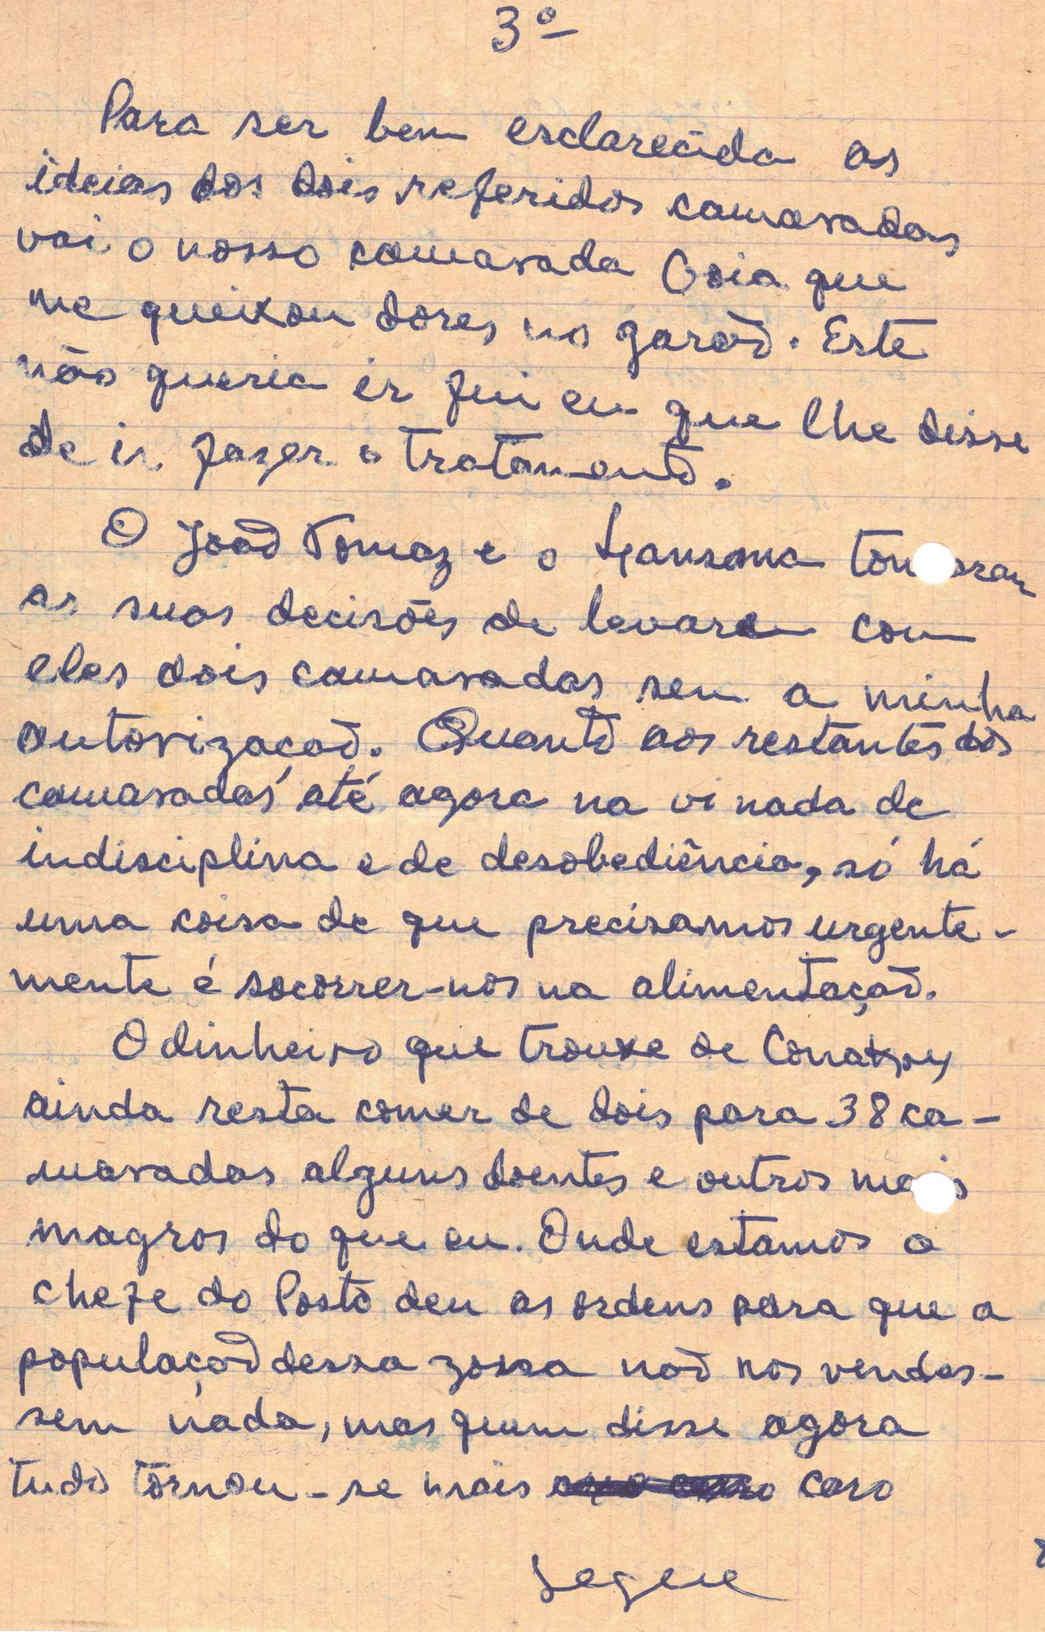 3º
Para ser bem esclarecida as
ideias dos dois referidos camaradas
vai o nosso camarada Goia que
me queixou dores no garoto. Este
não queria ir fui eu que lhe disse
de ir fazer o tratamento.
O João Tomaz e o Mansoma tomaram
as suas decisões de levarem com
eles dois camaradas sem a minha
autorização. Quanto aos restantes dos
camaradas até agora na vi nada de
indisciplina e de desobediência, só há
uma coisa de que precisamos urgente-
mente é socorrer-nos na alimentação.
O dinheiro que trouxe de Conakry
ainda resta comer de dois para 38 ca-
maradas alguns doentes e outros mais
magros do que eu. Onde estamos o
chefe do Posto deu as ordens para que a
população dessa zona não nos vendes-
sem nada, mas quem disse agora
tudo tornou-se mais caro
Segue